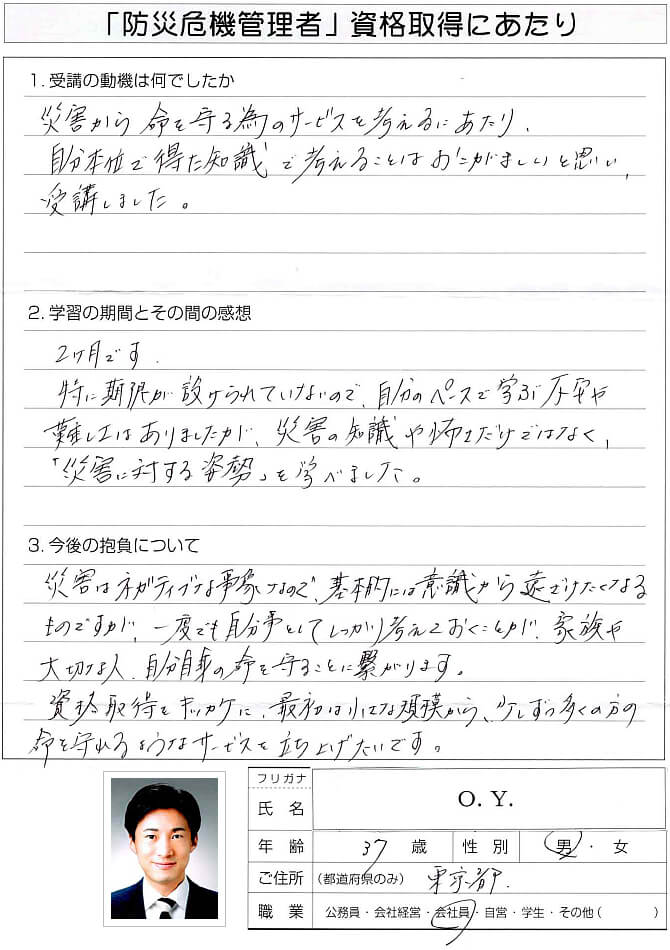 「防災危機管理者」資格取得にあたり
1. 受講の動機は何でしたか
災害から命を守る為のサービスを考えるにあたり、
自分本位で得た知識で考えることはおこがましいと思い、
受講しました。
2. 学習の期間とその間の感想
2ヶ月です.
特に期限が設けられていないので、自分のペースで学ぶ不安や
難しさはありましたが、災害の知識や怖さだけではなく、
「災害に対する姿勢」を学べました。
3. 今後の抱負について
災害はネガティブな事象なので、基本的には意識から遠ざけたくなる
ものですが、一度でも自分事としてしっかり考えておくことが、家族や
大切な人、自分自身の命を守ることに繋がります。
資格取得をキッカケに、最初は小さな規模から、少しずつ多くの方の
命を守れるようなサービスを立ち上げたいです。
フリガナ
氏名 O. Y.
年齢 37歳 性別 男・女
ご住所 (都道府県のみ) 東京都.
職業 公務員・会社経営・会社員・自営・学生・その他 ( )